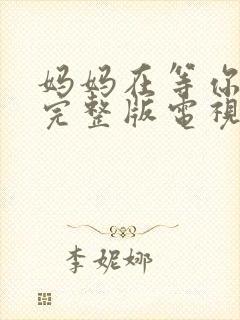 妈妈在等你
完整版電視
李妮娜